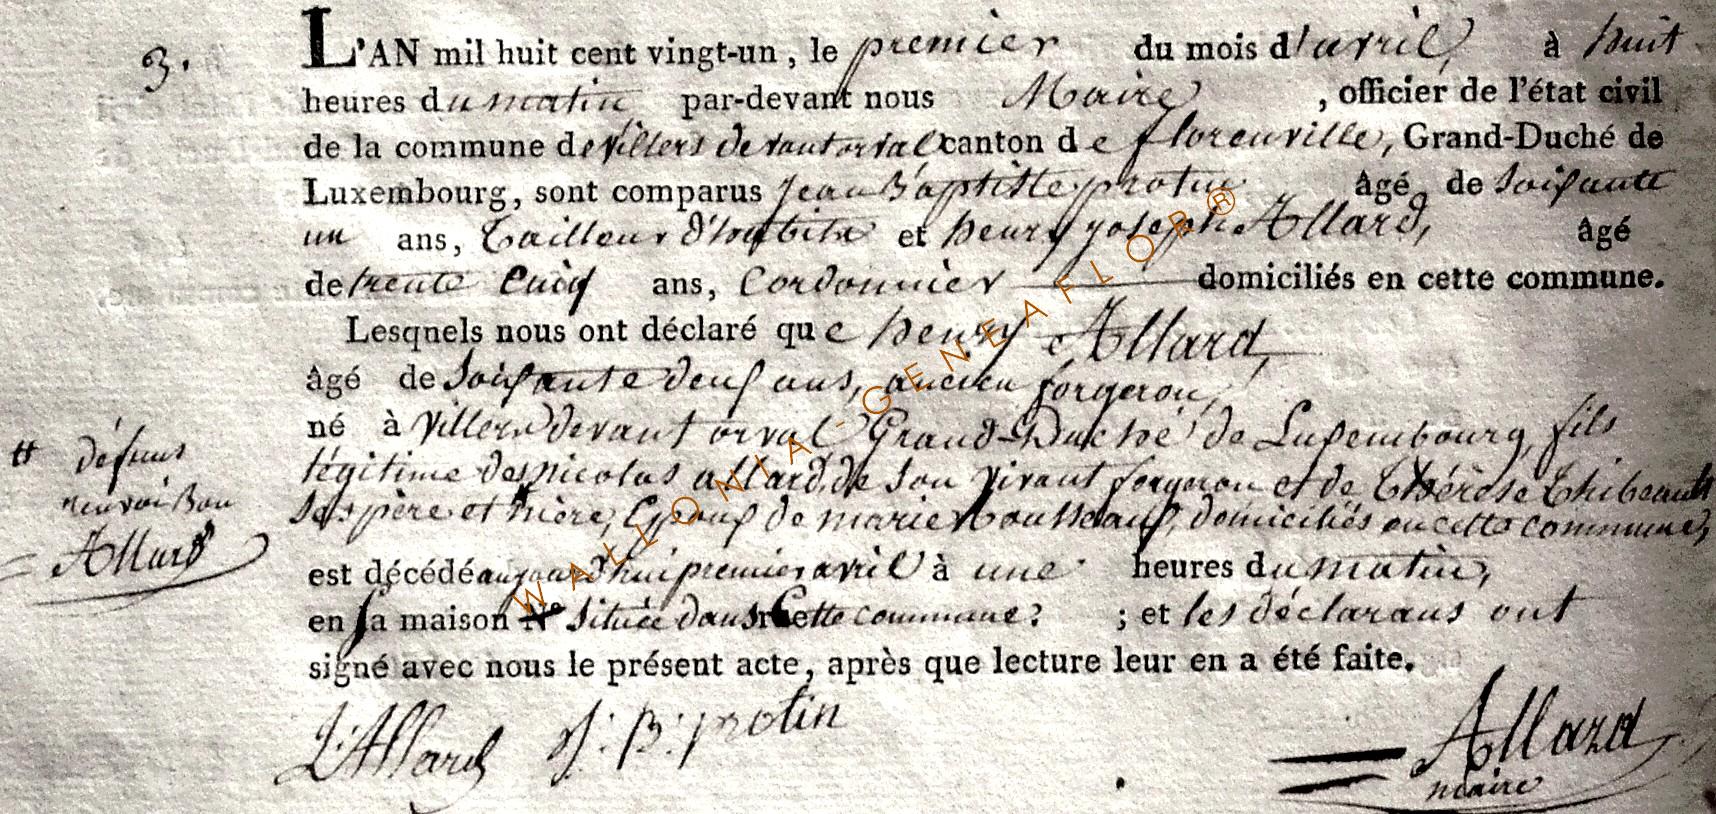 3. L'AN mil huit cent vingt-un, le premier du mois d'avril, à huit
heures du matin par-devant nous Maire, officier de l'état civil
de la commune de villers devant orval canton de florenville, Grand-Duché de
Luxembourg, sont comparus Jean Baptiste protin âgé de Soixante
un ans, Tailleur d'habits et henry joseph Allard, âgé
de trente cinq ans, Cordonnier domiciliés en cette commune.
Lesquels nous ont déclaré que henry Allard,
âgé de Soixante deux ans, ancien forgeron,
né à Villers devant orval Grand-Duché de Luxembourg, fils
légitime des nicolas allard, de son vivant forgeron et de Thérèse Thibeault
Ses père et mère, Epoux de marie domiciliés en cette commune,
tt défuns
renvoi Bon
Allard
est décédé aujourd'hui premier avril à une heures du matin,
en sa maison N° située dans cette commune ; et les déclarans ont
signé avec nous le présent acte, après que lecture leur en a été faite.
Allard J: B: protin Allard
maire
WALLONIA-GENEAFLOR®